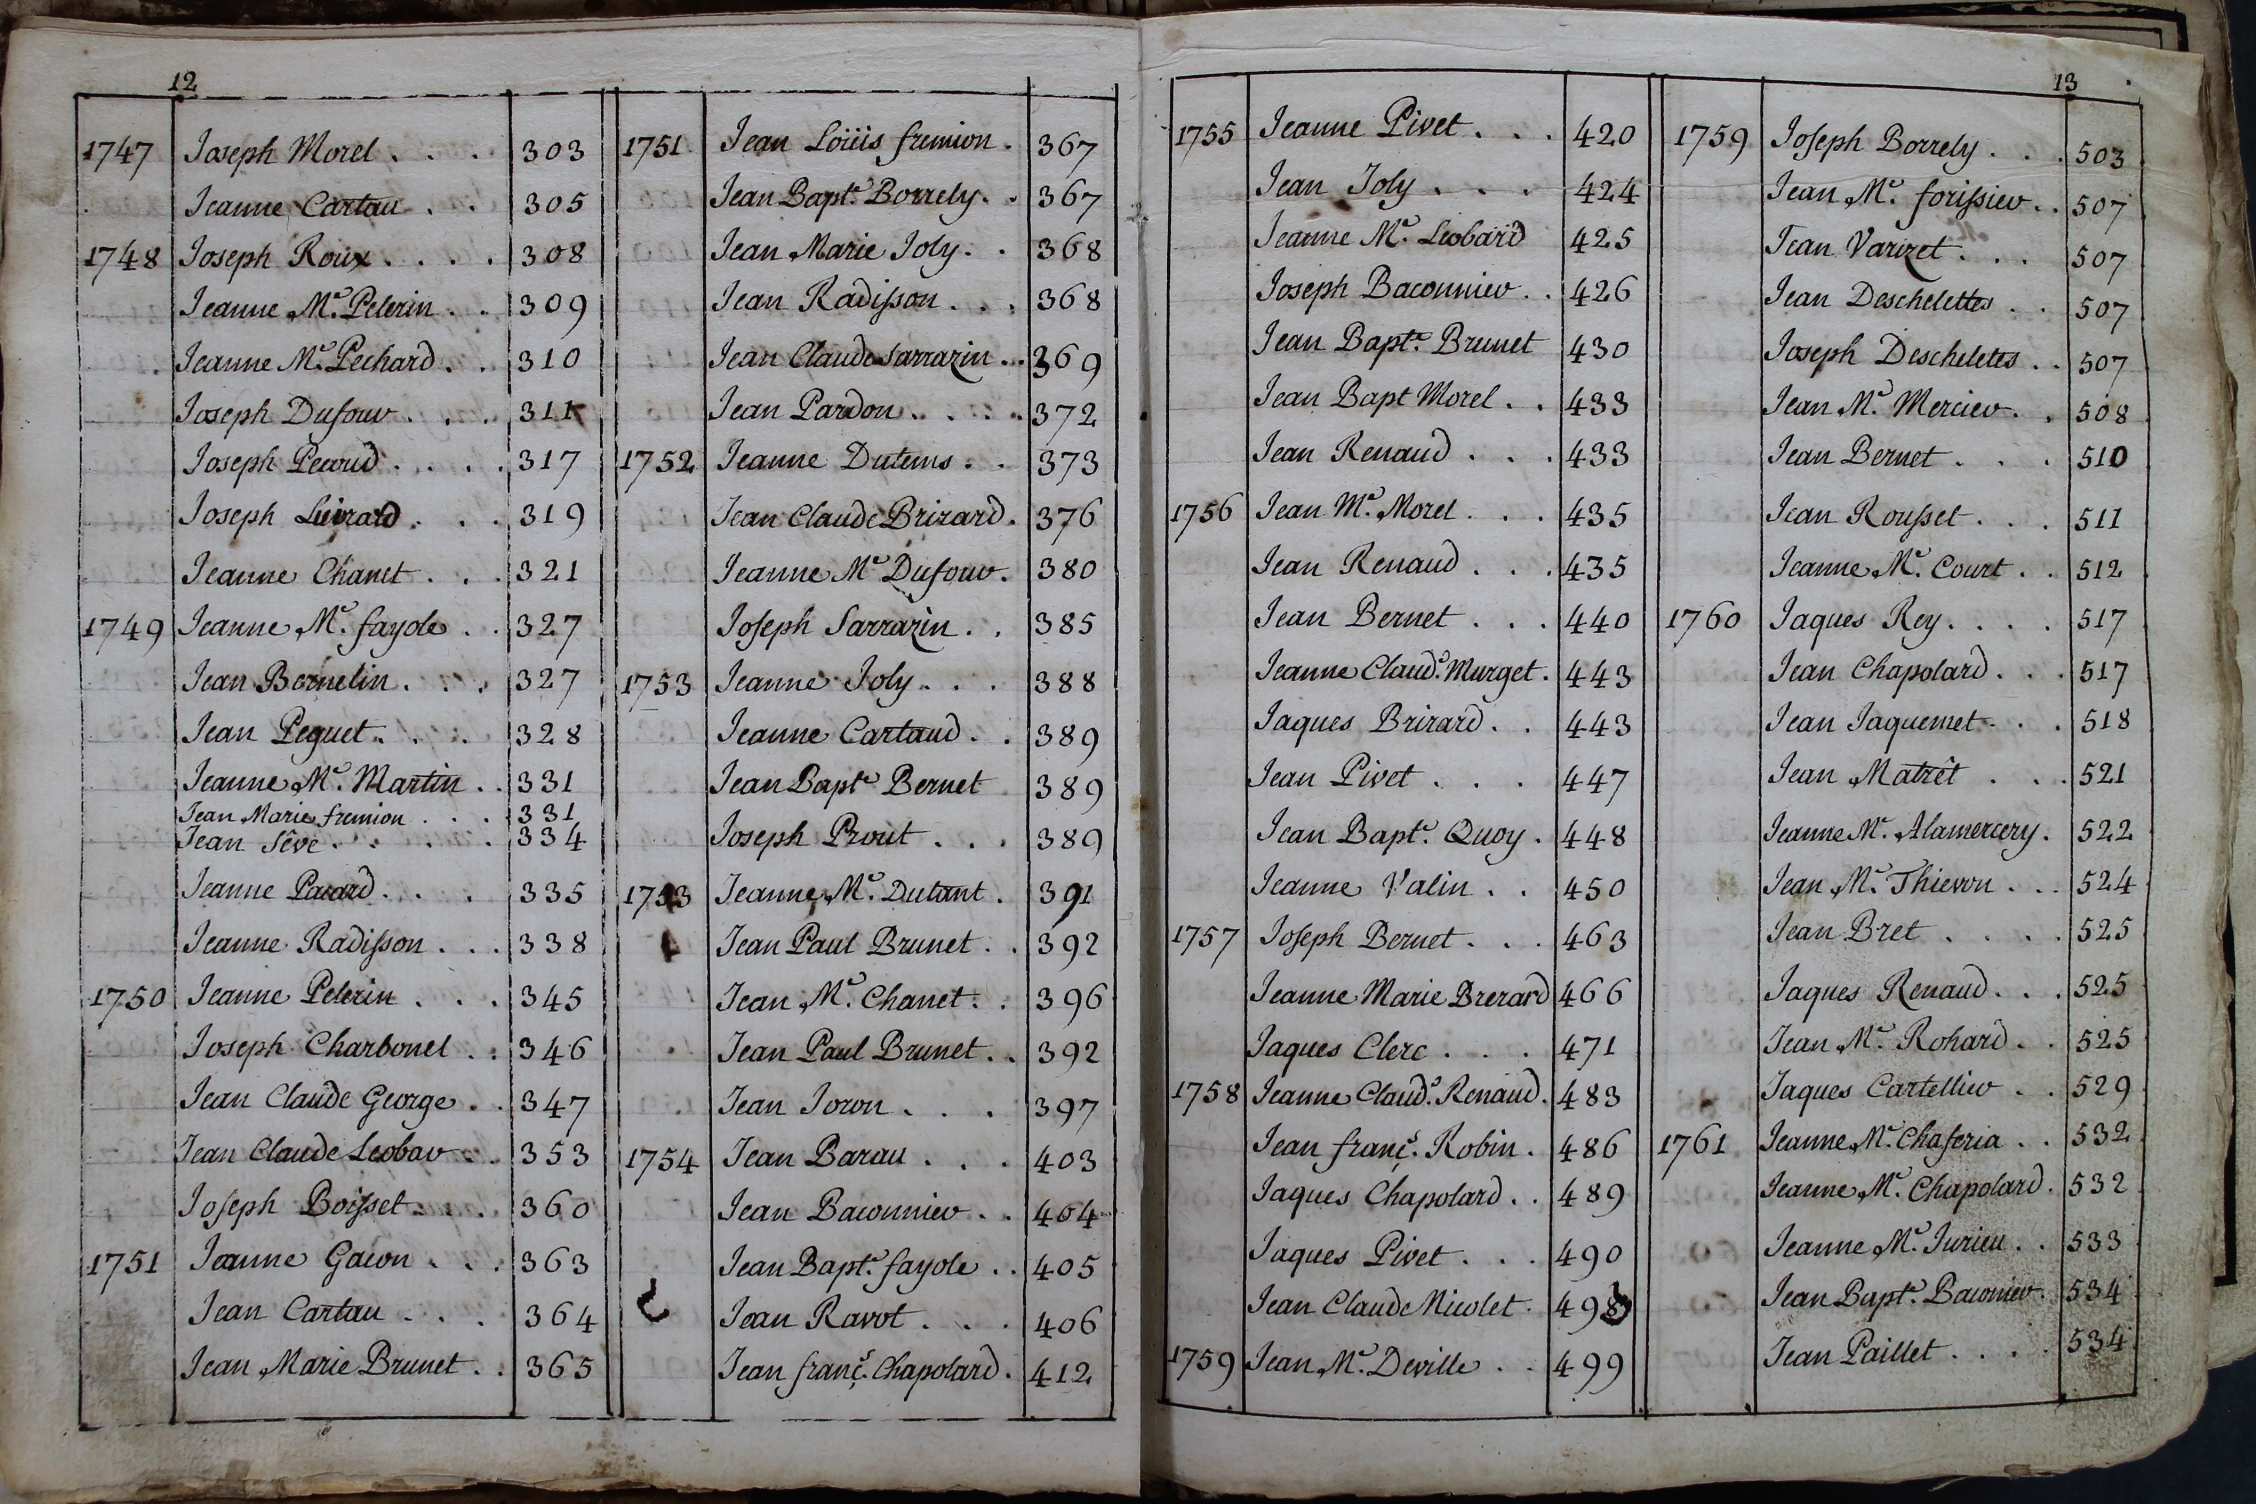 12
1747 Joseph Morel . . . 303
Jeanne Cartau . . 305
1748 Joseph Roux . . . . 308
Jeanne Me. Pelerin . . 309
Jeanne Me. Pechard . . 310
Joseph Dufour . . . 311
Joseph Pecoud . . . . 317
Joseph Livrard . . . 319
Jeanne Chanet . . . 321
1749 Jeanne Me. fayole . . 327
Jean Bernelin . . . 327
Jean Peguet . . . . 328
Jeanne Me. Martin . . 331
Jean Marie fremion . . . 331
Jean Sève . . . . . 334
Jeanne Pacard . . . . 335
Jeanne Radisson . . . 338
1750 Jeanne Pelerin . . . 345
Joseph Charbonel . . 346
Jean Claude George . . 347
Jean Claude Leobar . . 353
Joseph Boisset . . . 360
1751 Jeanne Gacon . . . 363
Jean Cartau . . . 364
Jean Marie Brunet . . 365
1751 Jean Loüis fremion . 367
Jean Bapte. Borrely . . 367
Jean Marie Joly . . 368
Jean Radisson . . . 368
Jean Claude Sarrazin . . 369
Jean Pardon . . . . 372
1752 Jeanne Dutems . . 373
Jean Claude Brizard . 376
Jeanne Me Dufour . 380
Joseph Sarrazin . . 385
1753 Jeanne Joly . . . 388
Jeanne Cartaud . . 389
Jean Bapte Bernet 389
Joseph Prout . . . 389
1753 Jeanne Me. Dutant . 391
Jean Paul Brunet . . 392
Jean Me. Chanet . . 396
Jean Paul Brunet . . 392
Jean Joron . . . 397
1754 Jean Barau . . . 403
Jean Baconnier . . 404
Jean Bapte. fayole . . 405
Jean Ravot . . . 406
Jean franç. Chapolard . 412
13
1755 Jeanne Pivet . . . 420
Jean Joly . . . 424
Jeanne Me. Leobard 425
Joseph Baconnier . . 426
Jean Bapte. Brunet 430
Jean Bapt Morel . . 433
Jean Renaud . . . 433
1756 Jean Me. Morel . . . 435
Jean Renaud . . . 435
Jean Bernet . . . 440
Jeanne Claude. Murget . 443
Jaques Brizard . . 443
Jean Pivet . . . 447
Jean Bapte. Quoy . 448
Jeanne Valin . . 450
1757 Joseph Bernet . . . 463
Jeanne Marie Brezard 466
Jaques Clerc . . . 471
1758 Jeanne Claude. Renaud . 483
Jean franç. Robin . 486
Jaques Chapolard . . 489
Jaques Pivet . . . 490
Jean Claude Nicolet . 498
1759 Jean Me. Deville . . 499
1759 Joseph Borrely . . . 503
Jean Me. forissier . . 507
Jean Varizet . . . 507
Jean Deschelettes . . 507
Joseph Descheletes . . 507
Jean Me. Mercier . . 508
Jean Bernet . . . 510
Jean Rousset . . . 511
Jeanne Me. Court . . 512
1760 Jaques Rey . . . . 517
Jean Chapolard . . . 517
Jean Jaquemet . . . 518
Jean Matrêt . . . 521
Jeanne Me. Alamercery . 522
Jean Me. Thievon . . . 524
Jean Bret . . . . 525
Jaques Renaud . . . 525
Jean Me. Rohard . . 525
Jaques Cartellier . . 529
1761 Jeanne Me. Chaferia . . 532
Jeanne Me. Chapolard . 532
Jeanne Me. Jurieu . . 533
Jean Bapte. Baconier . 534
Jean Paillet . . . . 534